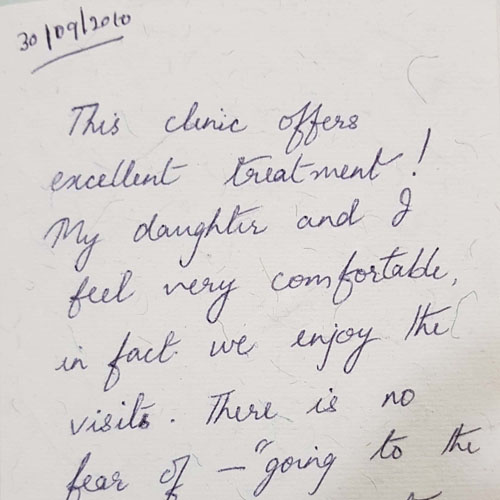 30/09/2010
This clinic offers
excellent treatment!
My daughter and I
feel very comfortable,
in fact we enjoy the
visits. There is no
fear of – "going to the